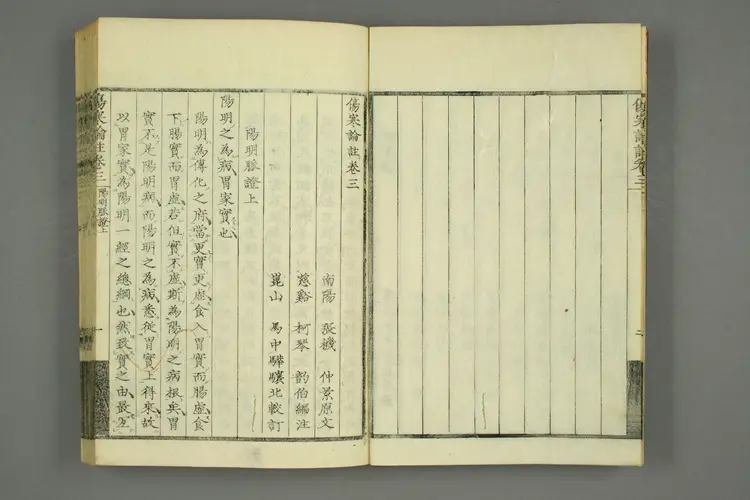 傷寒論註卷三
傷寒論註卷三
南陽 張機 仲景原文
慈谿 柯琴 韵伯編注
崑山 馬中驊驤北較訂
陽明脈證上
陽明之為病胃家實也
陽明為傳化之府當更實更虛食入胃實而腸虛食
下腸實而胃虛若但實不虛斯為陽明之病根矣胃
實不是陽明病而陽明之為病悉從胃實上得來故
以胃家實為陽明一經之總綱也然致實之由最宜
傷寒論註卷三
陽明脈證上
一